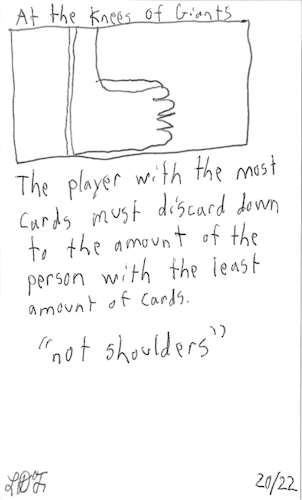 At the Knees of Giants
The player with the most
cards must discard down
to the amount of the
person with the least
amount of cards.
"not shoulders"
20/22